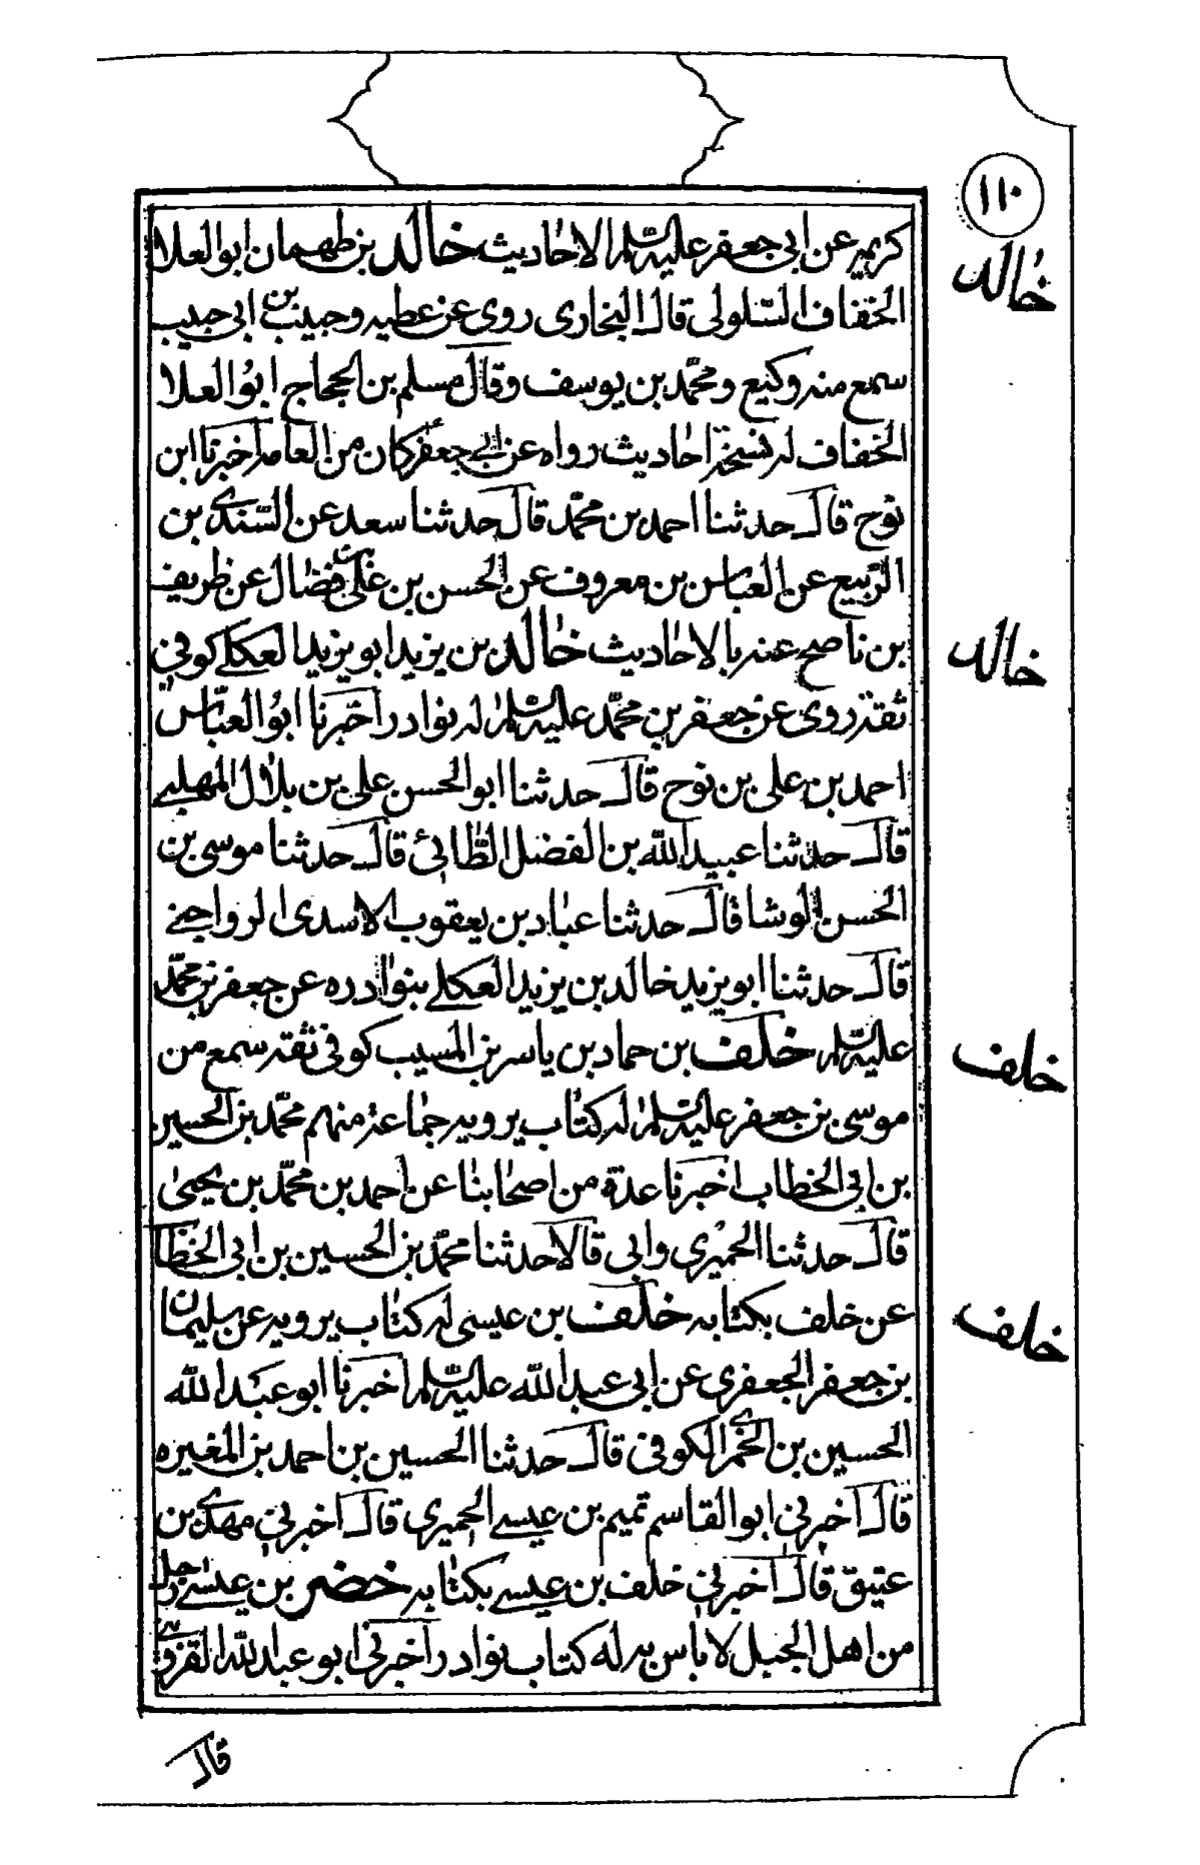 ١١٠
كريم عن ابى جعفر عليه السلم الاحاديث خالد بن طهمان ابو العلا
خالد
الخفاف السلولى قال البخارى روى عن عطيه وحبيب بن ابى حبيب
سمع منه وكيع ومحمد بن يوسف وقال مسلم بن الحجاج ابو العلا
الخفاف له نسخة احاديث رواه عن ابى جعفر كان من العامه اخبرنا ابن
نوح قال حدثنا احمد بن محمد قال حدثنا سعد عن السندى بن
الربيع عن العباس بن معروف عن الحسن بن على بن فضال عن ظريف
بن ناصح عنه بالاحاديث خالد بن يزيد ابو يزيد العكلى كوفى
خالد
ثقة روى عن جعفر بن محمد عليه السلم له نوادر اخبرنا ابو العباس
احمد بن على بن نوح قال حدثنا ابو الحسن على بن بلال المهلبى
قال حدثنا عبيد الله بن الفضل الطائى قال حدثنا موسى بن
الحسن الوشا قال حدثنا عباد بن يعقوب الاسدى الرواجنى
قال حدثنا ابو يزيد خالد بن يزيد العكلى بنوادره عن جعفر بن محمد
عليه السلم خلف بن حماد بن ياسر بن المسيب كوفى ثقة سمع من
خلف
موسى بن جعفر عليه السلم له كتاب يرويه جماعة منهم محمد بن الحسين
بن ابى الخطاب اخبرنا عدة من اصحابنا عن احمد بن محمد بن يحيى
قال حدثنا الحميرى وابى قالا حدثنا محمد بن الحسين بن ابى الخطا
عن خلف بكتابه خلف بن عيسى له كتاب يرويه عن سليمان
خلف
بن جعفر الجعفرى عن ابى عبد الله عليه السلم اخبرنا ابو عبد الله
الحسين بن الخمرى الكوفى قال حدثنا الحسين بن احمد بن المغيره
قال اخبرنى ابو القاسم تميم بن عيسى الحميرى قال اخبرنى مهدى بن
عتيق قال اخبرنى خلف بن عيسى بكتابه خضر بن عيسى رجل
من اهل الجبل لا باس به له كتاب نوادر اخبرنى ابو عبد الله القزوينى
قال